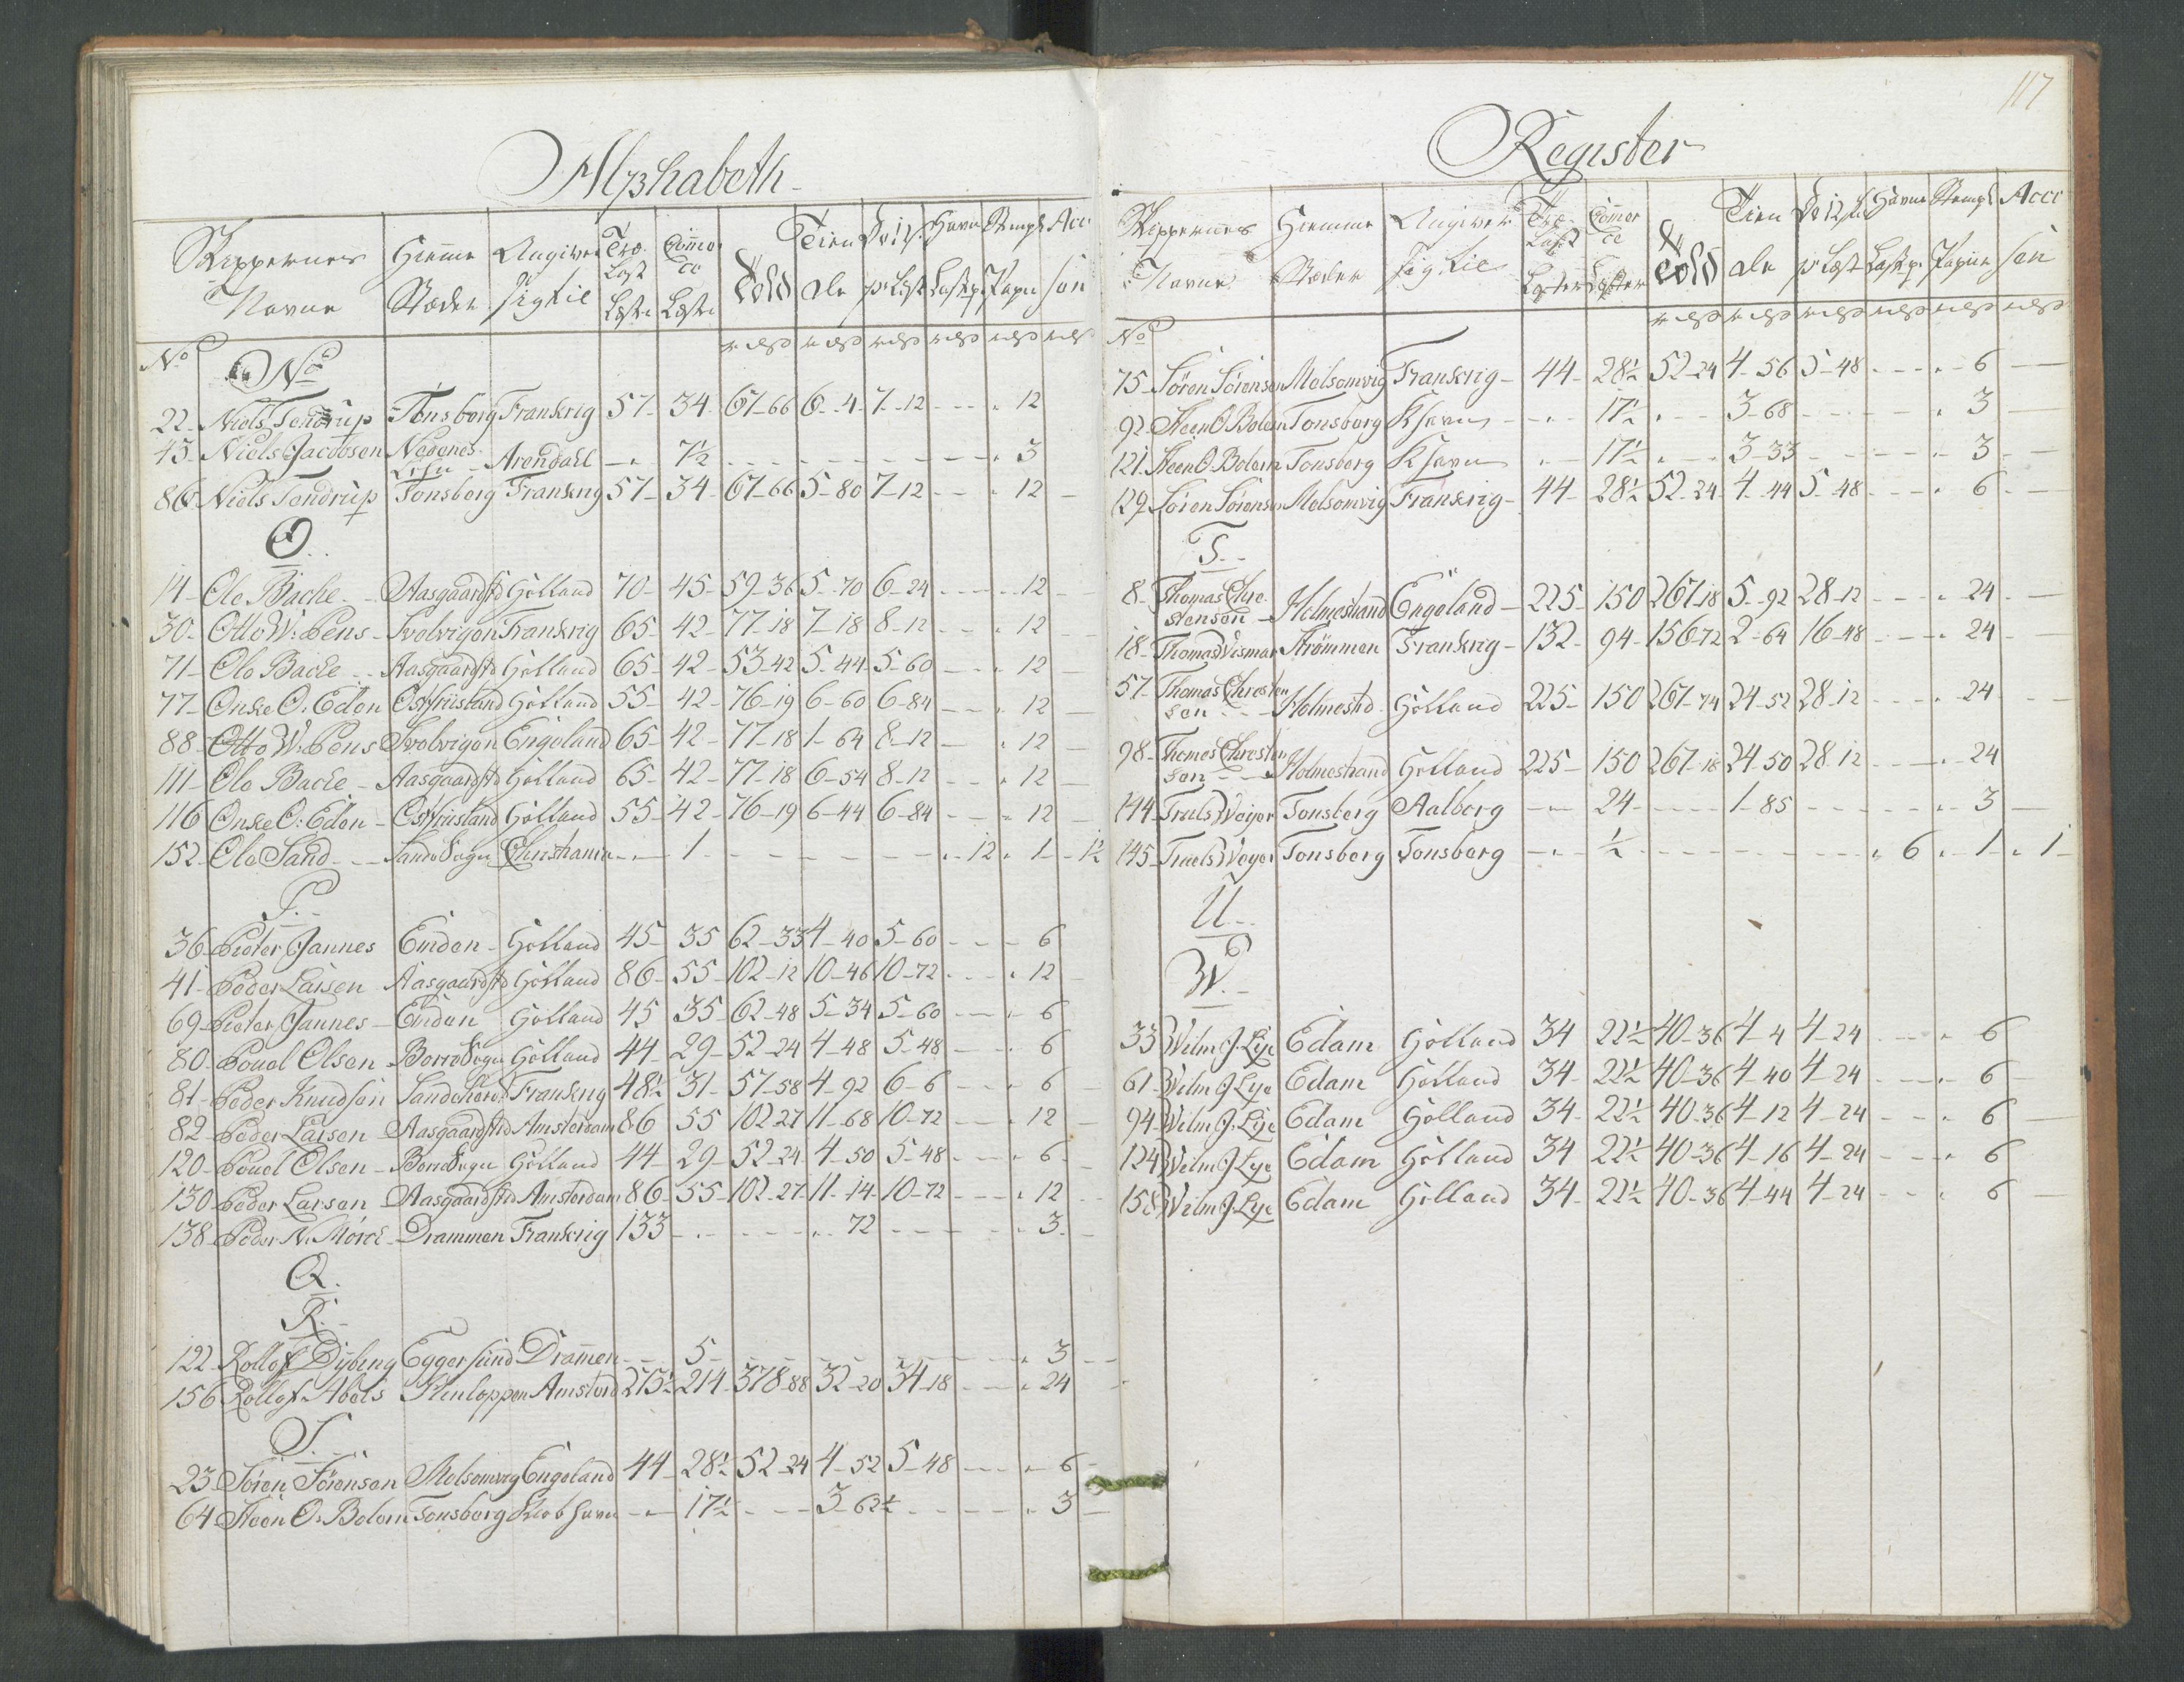 Alphabeth
Skippernes Navne
Hiemme Stæder
Angiver sig til
Træ Last Læster
Commerce Læster
Told
Tiende
Havne
Stempl Papir
No
N
22 Niels Tendrup Tønsberg Frankrig 57 34 67-66 6-4 7-12 12
43 Niels Jacobsen Nedenes Lehn Arendall 7½ 3
86 Niels Tendrup Tonsberg Frankrig 57 34 67-66 5-80 7-12 12
O
11 Ole Bache Aasgaardstd Holland 70 45 59-36 5-70 6-24 12
30 Otto W. Pens Svolvigen Frankrig 65 42 77-18 7-18 8-12 12
71 Ole Backe Aasgaardstd Holland 65 42 53-42 5-44 5-60 12
77 Onke O. Eden Ostfriisland Holland 55 42 76-19 6-60 6-84 12
88 Otto W. Pens Svolvigen Engeland 65 42 77-18 1-64 8-12 12
111 Ole Backe Aasgaardstd Holland 65 42 77-18 6-54 8-12 12
116 Onke O. Eden Ostfriisland Holland 55 42 76-19 6-44 6-84 12
152 Ole Sand Sande Sogn Christiania 1 12 1 1½
P.
36 Pieter Jannes Emden Holland 45 35 62-33 4-40 5-60 6
41 Peder Larsen Aasgaardstd Holland 86 55 102-12 10-46 10-72 12
69 Pieter Jannes Emden Holland 45 35 62-48 5-34 5-60 6
80 Pouel Olsen Borre Sogn Holland 44 29 52-24 4-48 5-48 6
81 Peder Knudsen Sandeherrd Frankrig 48½ 31 57-58 4-92 6-6 6
82 Peder Larsen Aasgaardstd Amsterdam 86 55 102-27 11-68 10-72 12
120 Pouel Olsen Borre Sogn Holland 44 29 52-24 4-50 5-48 6
130 Peder Larsen Aasgaardstd Amsterdam 86 55 102-27 11-14 10-72 12
138 Peder N. Mörch Drammen Frankrig 133 72 3
Q.
R.
122 Rollof Dybing Eggersund Dramen 5 3
156 Rollof Abels Amsterd 273½ 214 378-88 32-20 34-18 24
S.
23 Sören Sörensen Melsomvig Engeland 44 28½ 52-24 4-52 5-48 6
64 Steen O. Bolem Tonsberg Kiobhavn 17½ 3-62½ 3
117
Register
Skippernes Navne
Hiemme Stæder
Angiver sig til
Træ Last Læster
Commerce Læster
Told
Tiende
Havne
Stempl Papiir
No
75 Sören Sörensen Melsomvig Frankrig 44 28½ 52-24 4-56 5-48 6
92 Steen O Bolem Tonsberg Khavn 17½ 3-68 3
121 Steen O Bolem Tonsberg Khavn 17½ 3-33 3
129 Sören Sörensen Melsomvig Frankrig 44 28½ 52-24 4-44 5-48 6
T.
8 Thomas Chrestensen Holmestrand Engeland 225 150 267-18 5-92 28-12 24
18 Thomas Wismar Strömmen Frankrig 132 94 156-72 2-64 16-48 24
57 Thomas Chrestensen Holmestrd Holland 225 150 267-74 24-52 28-12 24
98 Thomes Chrestensen Holmestrand Holland 225 150 267-18 24-50 28-12 24
144 Truls Weyer Tonsberg Aalborg 24 1-85 3
145 Truels Weyer Tonsberg Tonsberg ½ 6 1 1
U
W.
33 Wilm J. Lye Edam Holland 34 22½ 40-36 4-4 4-24 6
61 Wilm J. Lye Edam Holland 34 22½ 40-36 4-40 4-24 6
94 Wilm J. Lye Edam Holland 34 22½ 40-36 4-12 4-24 6
124 Wilm J. Lye Edam Holland 34 22½ 40-36 4-16 4-24 6
158 Wilm J. Lye Edam Holland 34 22½ 40-36 4-44 4-24 6